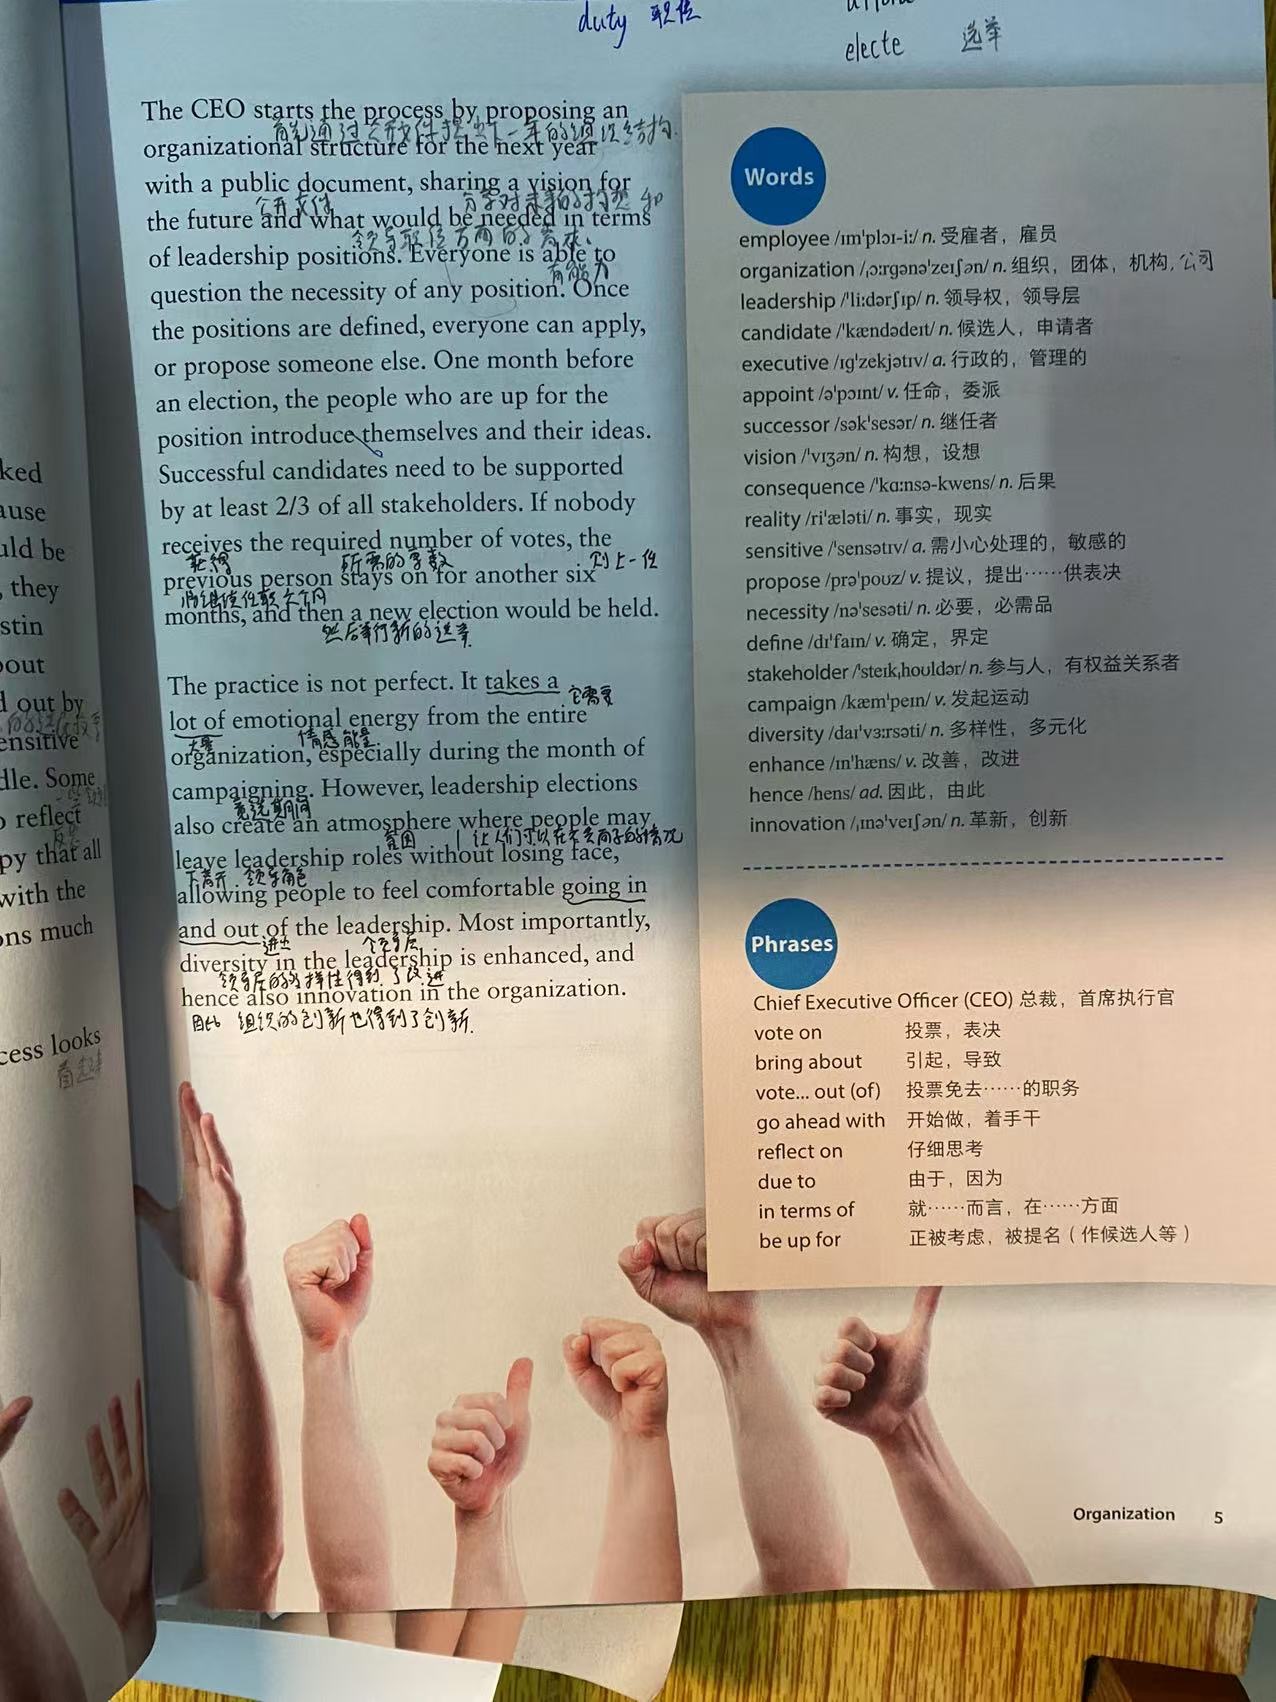 duty 职位
electe 选举
ked
ause
uld be
, they
stin
out
d out by
ensitive
dle. Some
o reflect
py that all
with the
ons much
cess looks
看起来
The CEO starts the process by proposing an
organizational structure for the next year
with a public document, sharing a vision for
公开文件
the future and what would be needed in terms
of leadership positions. Everyone is able to
有能力
question the necessity of any position. Once
the positions are defined, everyone can apply,
or propose someone else. One month before
an election, the people who are up for the
position introduce themselves and their ideas.
Successful candidates need to be supported
by at least 2/3 of all stakeholders. If nobody
receives the required number of votes, the
获得 所需的票数 则上一任
previous person stays on for another six
将继续任职六个月
months, and then a new election would be held.
然后举行新的选举
The practice is not perfect. It takes a
它需要
lot of emotional energy from the entire
大量 情感能量
organization, especially during the month of
campaigning. However, leadership elections
竞选期间
also create an atmosphere where people may
氛围 让人们可以在不丢面子的情况
leave leadership roles without losing face,
下离开 领导角色
allowing people to feel comfortable going in
and out of the leadership. Most importantly,
进出 领导层
diversity in the leadership is enhanced, and
领导层的多样性得到了改进
hence also innovation in the organization.
因此 组织的创新也得到了创新.
Words
employee /ɪmˈplɔɪ-iː/ n. 受雇者，雇员
organization /ˌɔːrɡənəˈzeɪʃən/ n. 组织，团体，机构, 公司
leadership /ˈliːdərʃɪp/ n. 领导权，领导层
candidate /ˈkændədeɪt/ n. 候选人，申请者
executive /ɪɡˈzekjətɪv/ a. 行政的，管理的
appoint /əˈpɔɪnt/ v. 任命，委派
successor /səkˈsesər/ n. 继任者
vision /ˈvɪʒən/ n. 构想，设想
consequence /ˈkɑːnsə-kwens/ n. 后果
reality /riˈæləti/ n. 事实，现实
sensitive /ˈsensətɪv/ a. 需小心处理的，敏感的
propose /prəˈpoʊz/ v. 提议，提出……供表决
necessity /nəˈsesəti/ n. 必要，必需品
define /dɪˈfaɪn/ v. 确定，界定
stakeholder /ˈsteɪkˌhoʊldər/ n. 参与人，有权益关系者
campaign /kæmˈpeɪn/ v. 发起运动
diversity /daɪˈvɜːrsəti/ n. 多样性，多元化
enhance /ɪnˈhæns/ v. 改善，改进
hence /hens/ ad. 因此，由此
innovation /ˌɪnəˈveɪʃən/ n. 革新，创新
Phrases
Chief Executive Officer (CEO) 总裁，首席执行官
vote on 投票，表决
bring about 引起，导致
vote... out (of) 投票免去……的职务
go ahead with 开始做，着手干
reflect on 仔细思考
due to 由于，因为
in terms of 就……而言，在……方面
be up for 正被考虑，被提名（作候选人等）
Organization 5